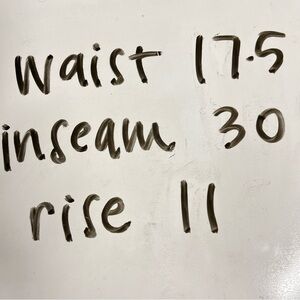 waist 17.5
inseam 30
rise 11